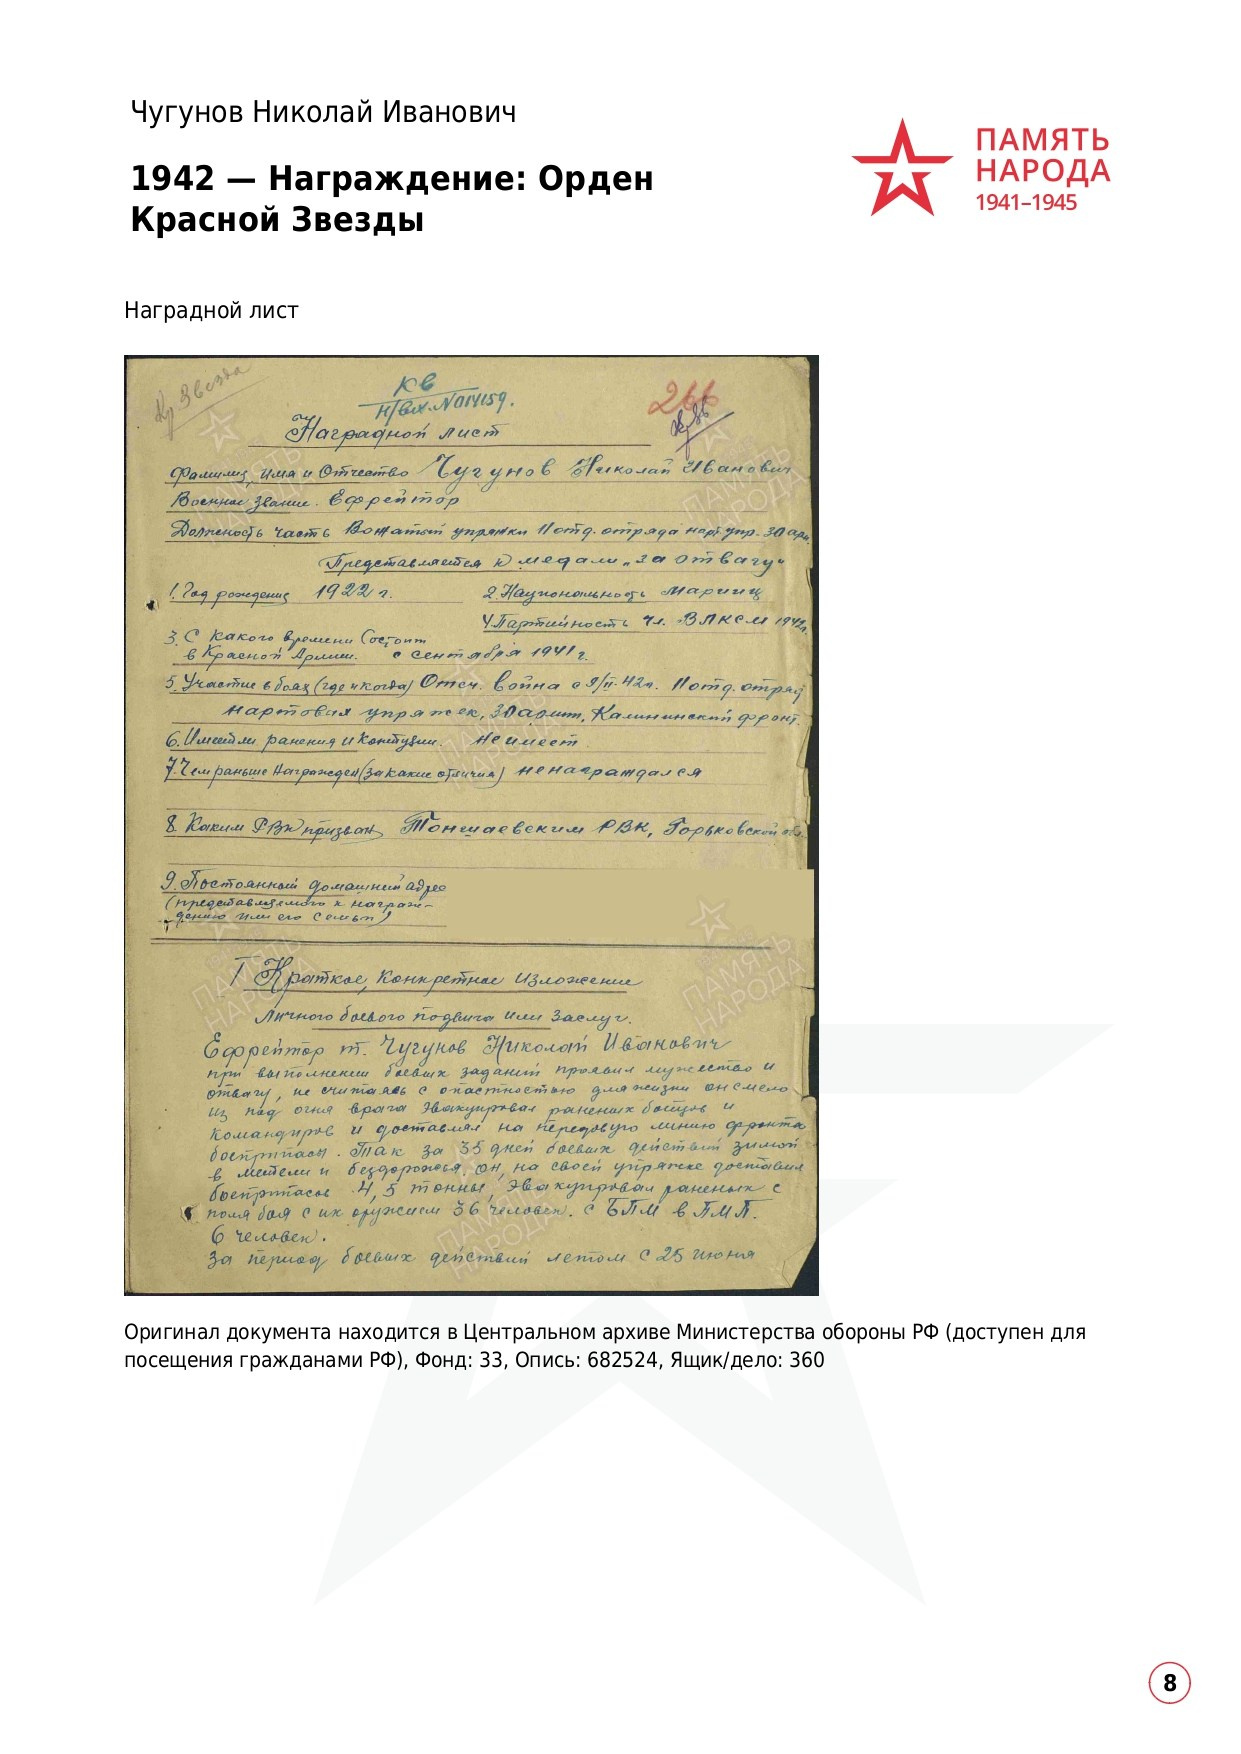 Чугунов Николай Иванович
1942 — Награждение: Орден
Красной Звезды
ПАМЯТЬ
НАРОДА
1941–1945
Наградной лист
Кр Звезда
КВ
Н/вх. N014159.
266
Наградной лист
Фамилия, имя и Отчество Чугунов Николай Иванович
Военное звание. Ефрейтор
Должность часть Вожатый упряжки 11 отд. отряда нарт. упр. 30 арм.
Представляется к медали „за отвагу"
1. Год рождения 1922 г.
2. Национальность Мариец
4 Партийность чл. ВЛКСМ 1942г.
3. С какого времени Состоит
в Красной Армии. с сентября 1941 г.
5. Участие в боях (где и когда) Отеч. война с 9/II-42г. 11 отд. отряд
нартовых упряжек, 30 армии, Калининский фронт.
6. Имеет ли ранения и контузии. не имеет.
7. Чем раньше награжден (за какие отличия) ненаграждался
8. Каким РВК призван Тоншаевским РВК, Горьковской обл.
9. Постоянный домашний адрес
(представляемого к награж-
дению или его семьи)
I Краткое, конкретное изложение
личного боевого подвига или заслуг.
Ефрейтор т. Чугунов Николай Иванович
при выполнении боевых заданий проявил мужество и
отвагу, не считаясь с опастностью для жизни он смело
из под огня врага эвакуировал раненых бойцов и
командиров и доставлял на передовую линию фронта
боеприпасы. Так за 35 дней боевых действий зимой
в метели и бездорожья, он, на своей упряжке доставил
боеприпасов 4,5 тонны, эвакуировал раненых с
поля боя с их оружием 36 человек. с БПМ в ПМП.
6 человек.
За период боевых действий летом с 25 июня
Оригинал документа находится в Центральном архиве Министерства обороны РФ (доступен для
посещения гражданами РФ), Фонд: 33, Опись: 682524, Ящик/дело: 360
8